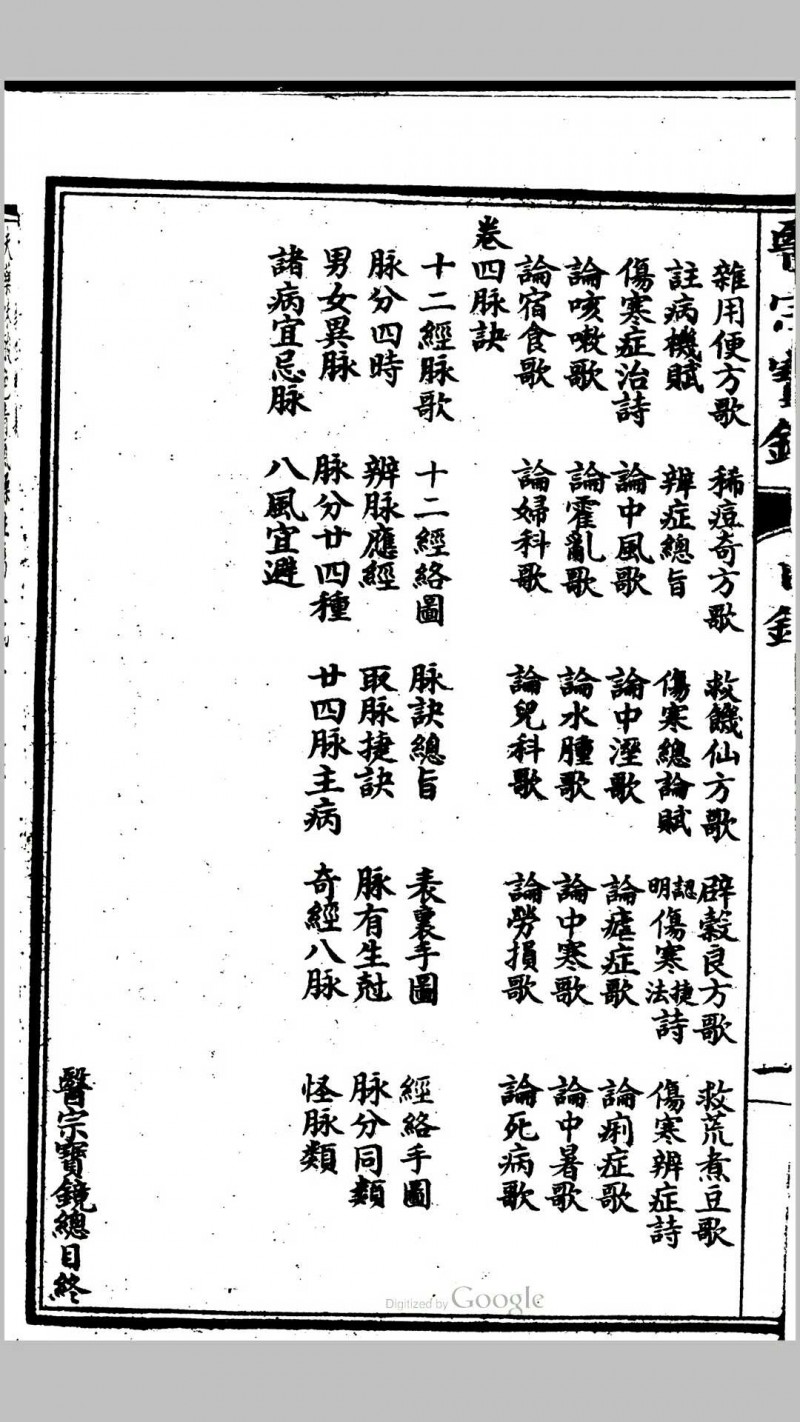 雜用便方歌 稀痘奇方歌 救饑仙方歌 辟穀良方歌 救荒煮豆歌
註病機賦 辨症總旨 傷寒總論賦 認明傷寒捷法詩 傷寒辨症詩
傷寒症治詩 論中風歌 論中溼歌 論瘧症歌 論痢症歌
論咳嗽歌 論霍亂歌 論水腫歌 論中寒歌 論中暑歌
論宿食歌 論婦科歌 論兒科歌 論勞損歌 論死病歌
卷四脉訣
十二經脉歌 十二經絡圖 脉訣總旨 表裏手圖 經絡手圖
脉分四時 辨脉應經 取脉捷訣 脉有生尅 脉分同類
男女異脉 脉分廿四種 廿四脉主病 奇經八脉 怪脉類
諸病宜忌脉 八風宜避
醫宗寶鏡總目終
Digitized by Google